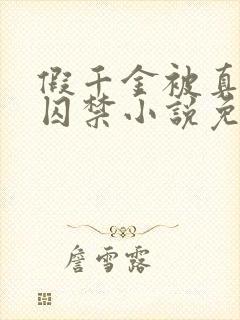 假千金被真
囚禁小说免
詹雪露